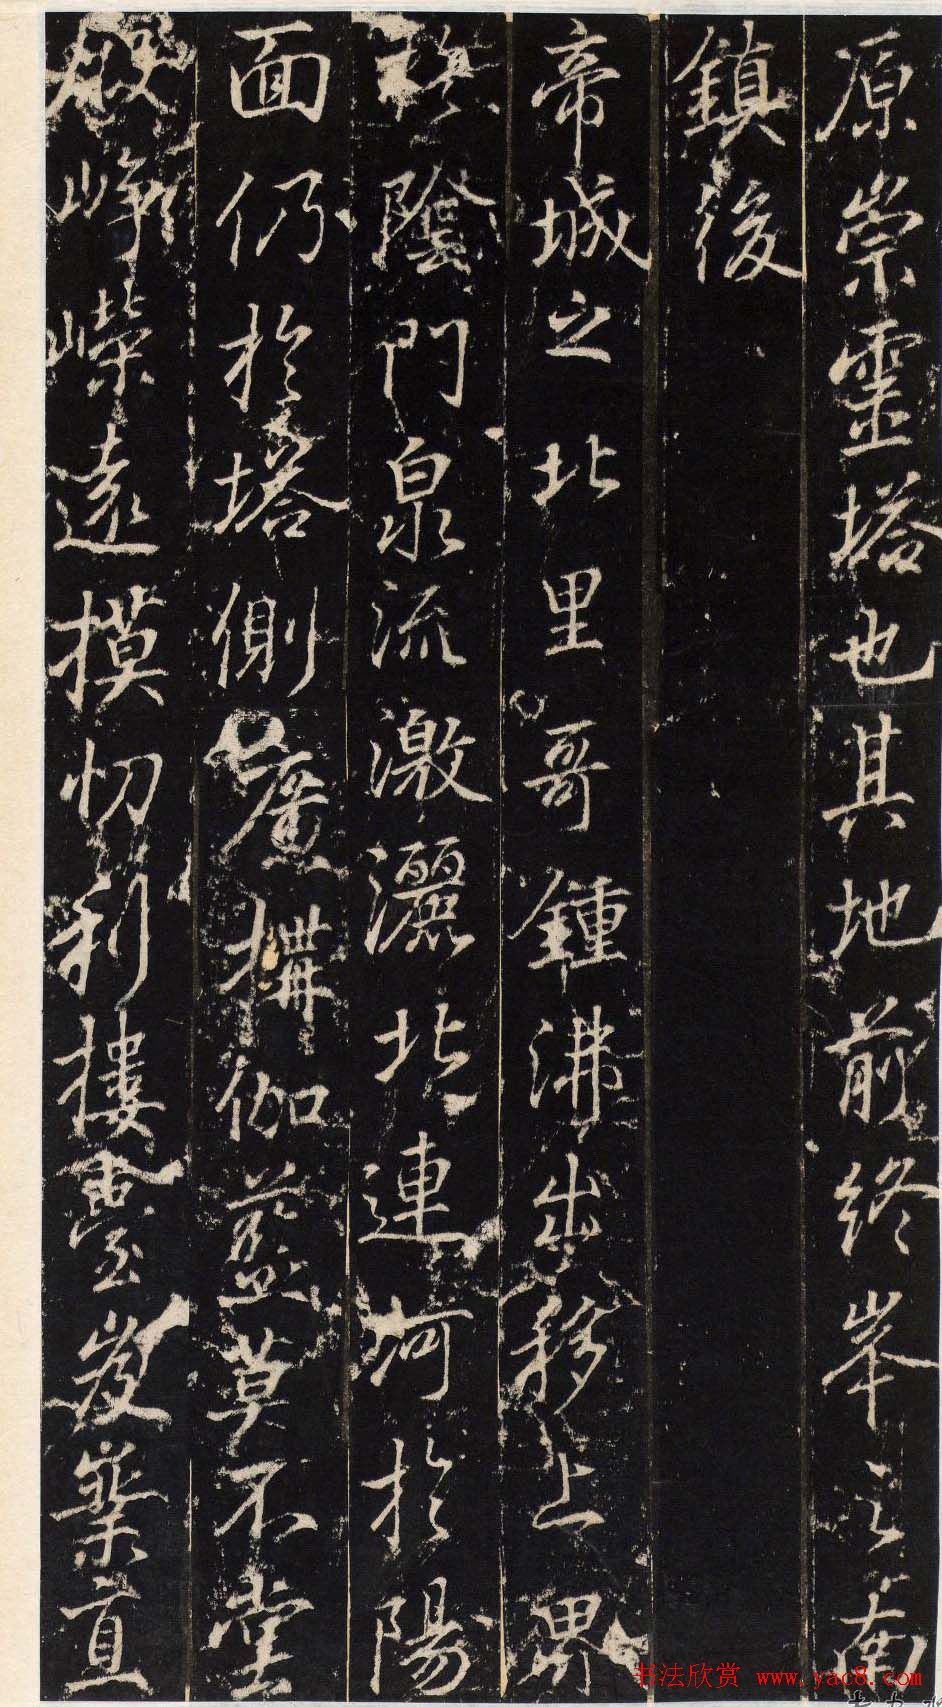 原崇靈塔也其地前終峯之南
鎮後
帝城之北里哥鍾沸出移上界
陰門泉流激灑北連河於陽
面仍於塔側廣搆伽藍莫不堂
殿崢嶸遠摸忉利摟臺岌嶪直
书法欣赏 www.yac8.com